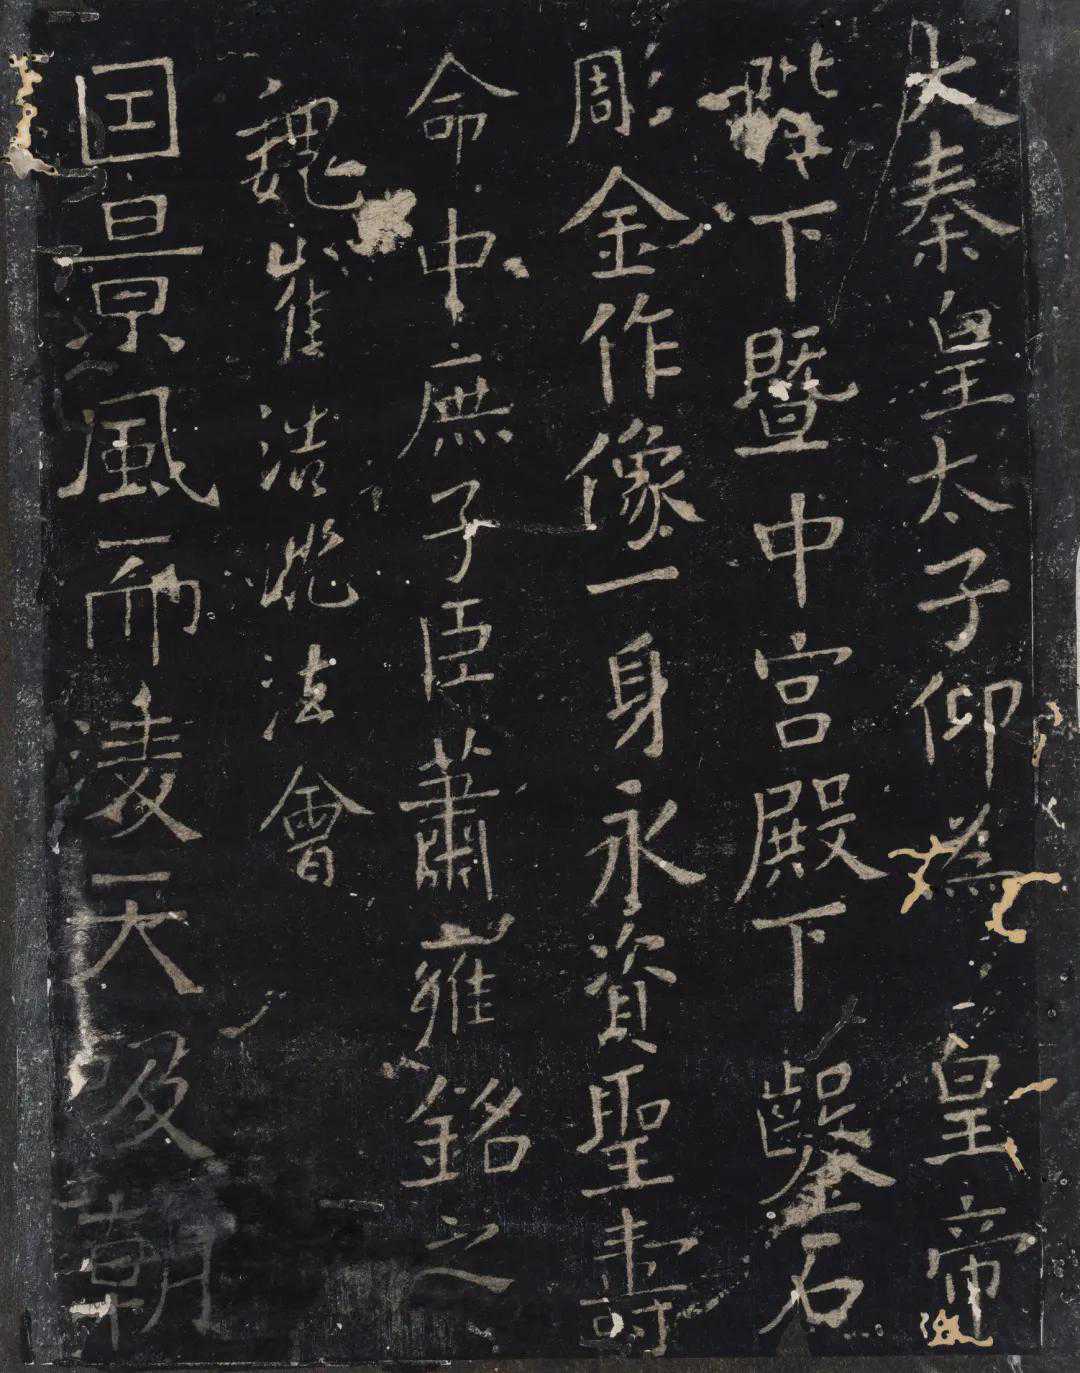 大秦皇太子仰為皇帝
陛下暨中宮殿下鑿石
彫金作像一身永資聖壽
命中庶子臣蕭雍銘之
魏崔浩法會
景風而凌天吸朝